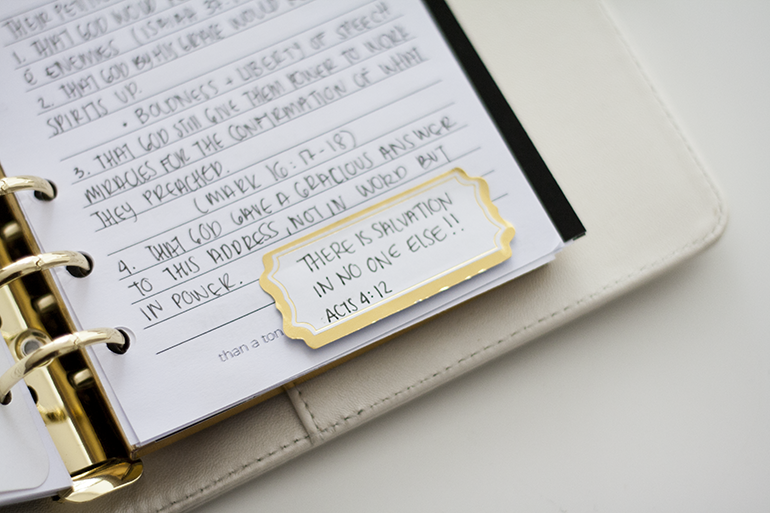 THEIR PETI
1. THAT GOD WOULD
ENEMIES (ISAIAH 37:
2. THAT GOD BY HIS GRACE WOULD
SPIRITS UP.
• BOLDNESS + LIBERTY OF SPEECH
3. THAT GOD STILL GIVE THEM POWER TO WORK
MIRACLES FOR THE CONFIRMATION OF WHAT
THEY PREACHED.
(MARK 16:17-18)
4. THAT GOD GAVE A GRACIOUS ANSWER
TO THIS ADDRESS, NOT IN WORD BUT
IN POWER.
THERE IS SALVATION
IN NO ONE ELSE!!
ACTS 4:12
than a ton